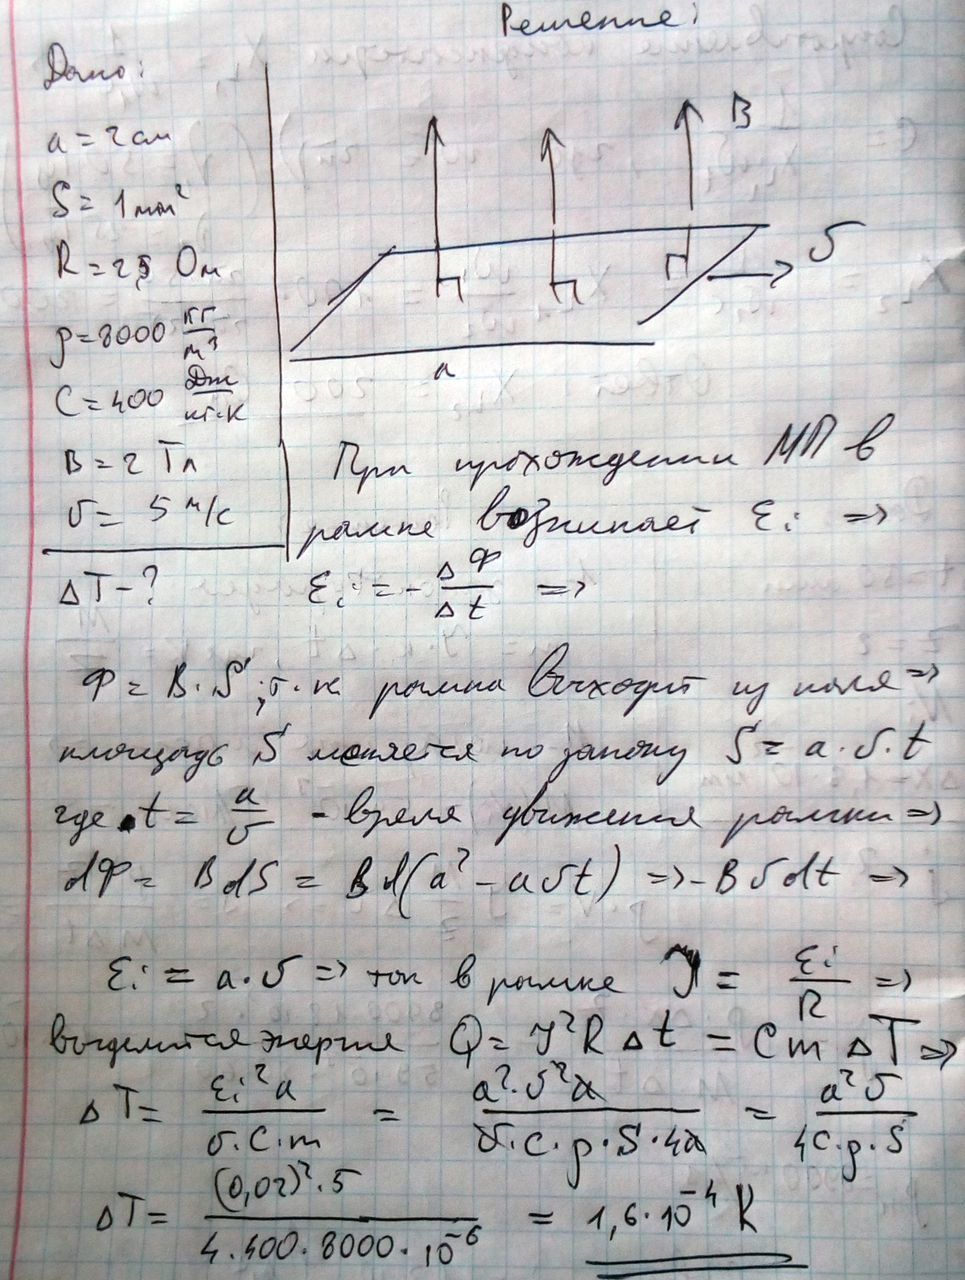 Решение:
Дано:
a = 2 см
S = 1 мм²
R = 25 Ом
ρ = 8000 кг/м³
C = 400 Дж/кг·К
B = 2 Тл
υ = 5 м/с
ΔT - ?
B
υ
a
При прохождении МП в
рамке возникает εi =>
εi = - ΔФ/Δt =>
Ф = B·S; т.к. рамка выходит из поля =>
площадь S меняется по закону S = a·υ·t
где t = a/υ - время движения рамки =>
dФ = BdS = Bd(a² - aυt) => -Bυdt =>
εi = a·υ => ток в рамке J = εi/R =>
выделится энергия Q = J²RΔt = CmΔT =>
ΔT = εi²a/υ·C·m = a²·υ²a/υ·C·ρ·S·4a = a²υ/4C·ρ·S
ΔT = (0,02)²·5/4·400·8000·10⁻⁶ = 1,6·10⁻⁴ K